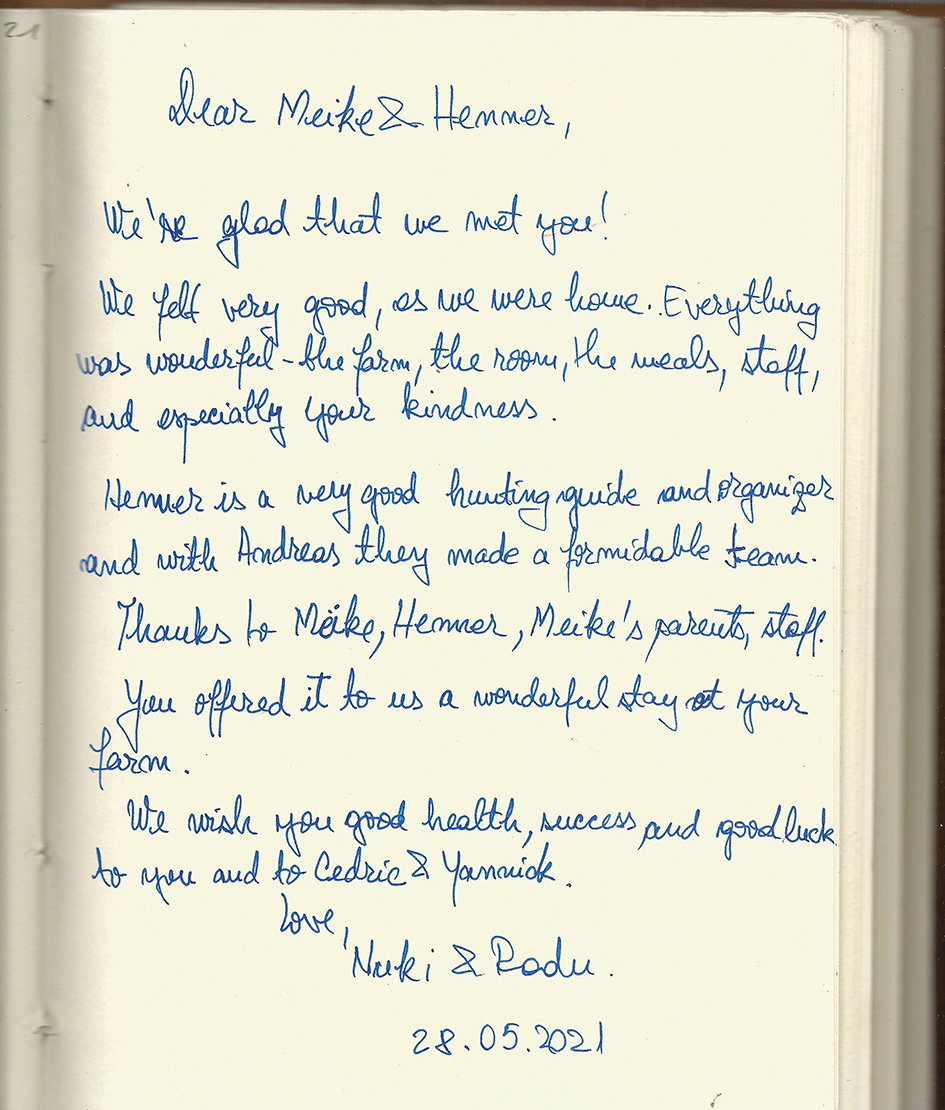 21
Dear Meike & Henner,
We're glad that we met you!
We felt very good, as we were home. Everything
was wonderful - the farm, the room, the meals, staff,
and especially your kindness.
Henner is a very good hunting guide and organizer
and with Andreas they made a formidable team.
Thanks to Meike, Henner, Meike's parents, staff.
You offered it to us a wonderful stay at your
farm.
We wish you good health, success, and good luck
to you and to Cedric & Yannick.
Love,
Nuki & Radu.
28.05.2021